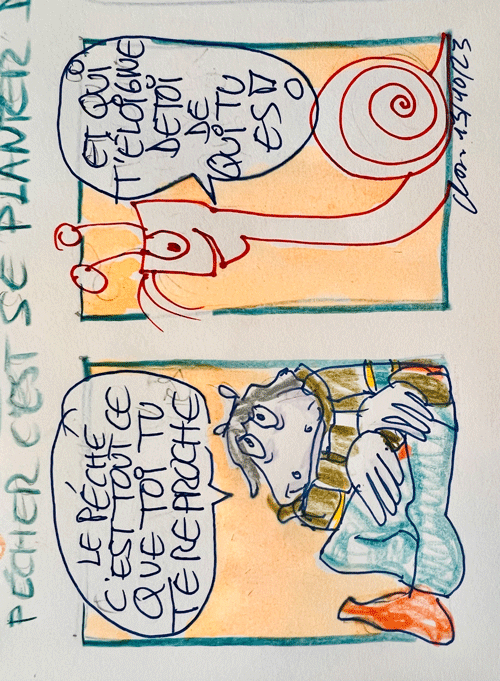 PÉCHER C'EST SE PLANTER
LE PÉCHÉ
C'EST TOUT CE
QUE TOI TU
TE REPROCHE
ET QUI
T'ÉLOIGNE
DE TOI
DE
QUI TU
ES